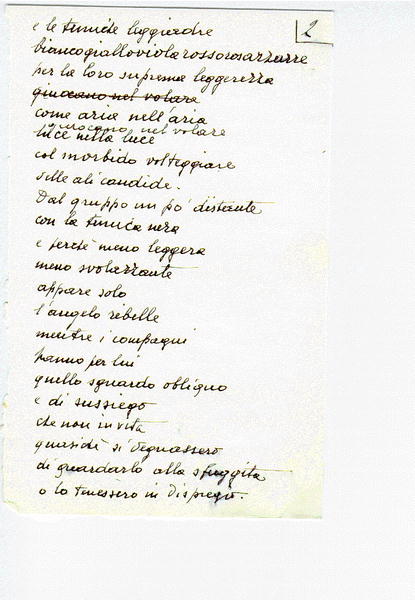 2
e le tuniche leggiadre
biancogialloviolarossorosazzurre
per la loro suprema leggerezza
giuocano nel volare
come aria nell'aria
luce nella luce
giuocano nel volare
col morbido volteggiare
delle ali candide.
Dal gruppo un po' distante
con la tunica nera
e perché meno leggera
meno svolazzante
appare solo
l'angelo ribelle
mentre i compagni
hanno per lui
quello sguardo obliquo
e di sussiego
che non invita
quasiché si degnassero
di guardarlo alla sfuggita
o lo tenessero in dispregio.